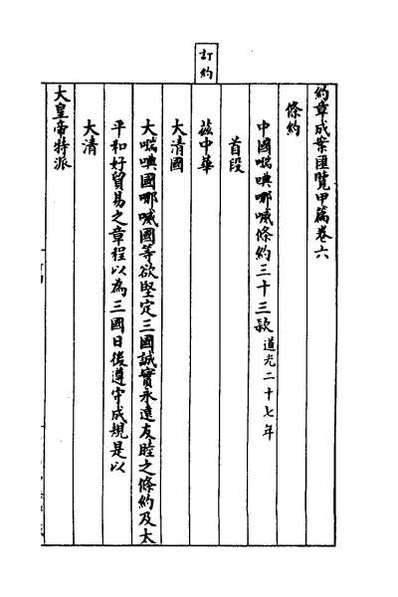 訂約
約章成案匯覽甲篇卷六
條約
中國㗖㗴㖿嘁條約三十三款道光二十七年
首段
茲中華
大清國
大㗖㗴國㖿嘁國等欲堅定三國誠實永遠友睦之條約及太
平和好貿易之章程以為三國日後遵守成規是以
大清
大皇帝特派